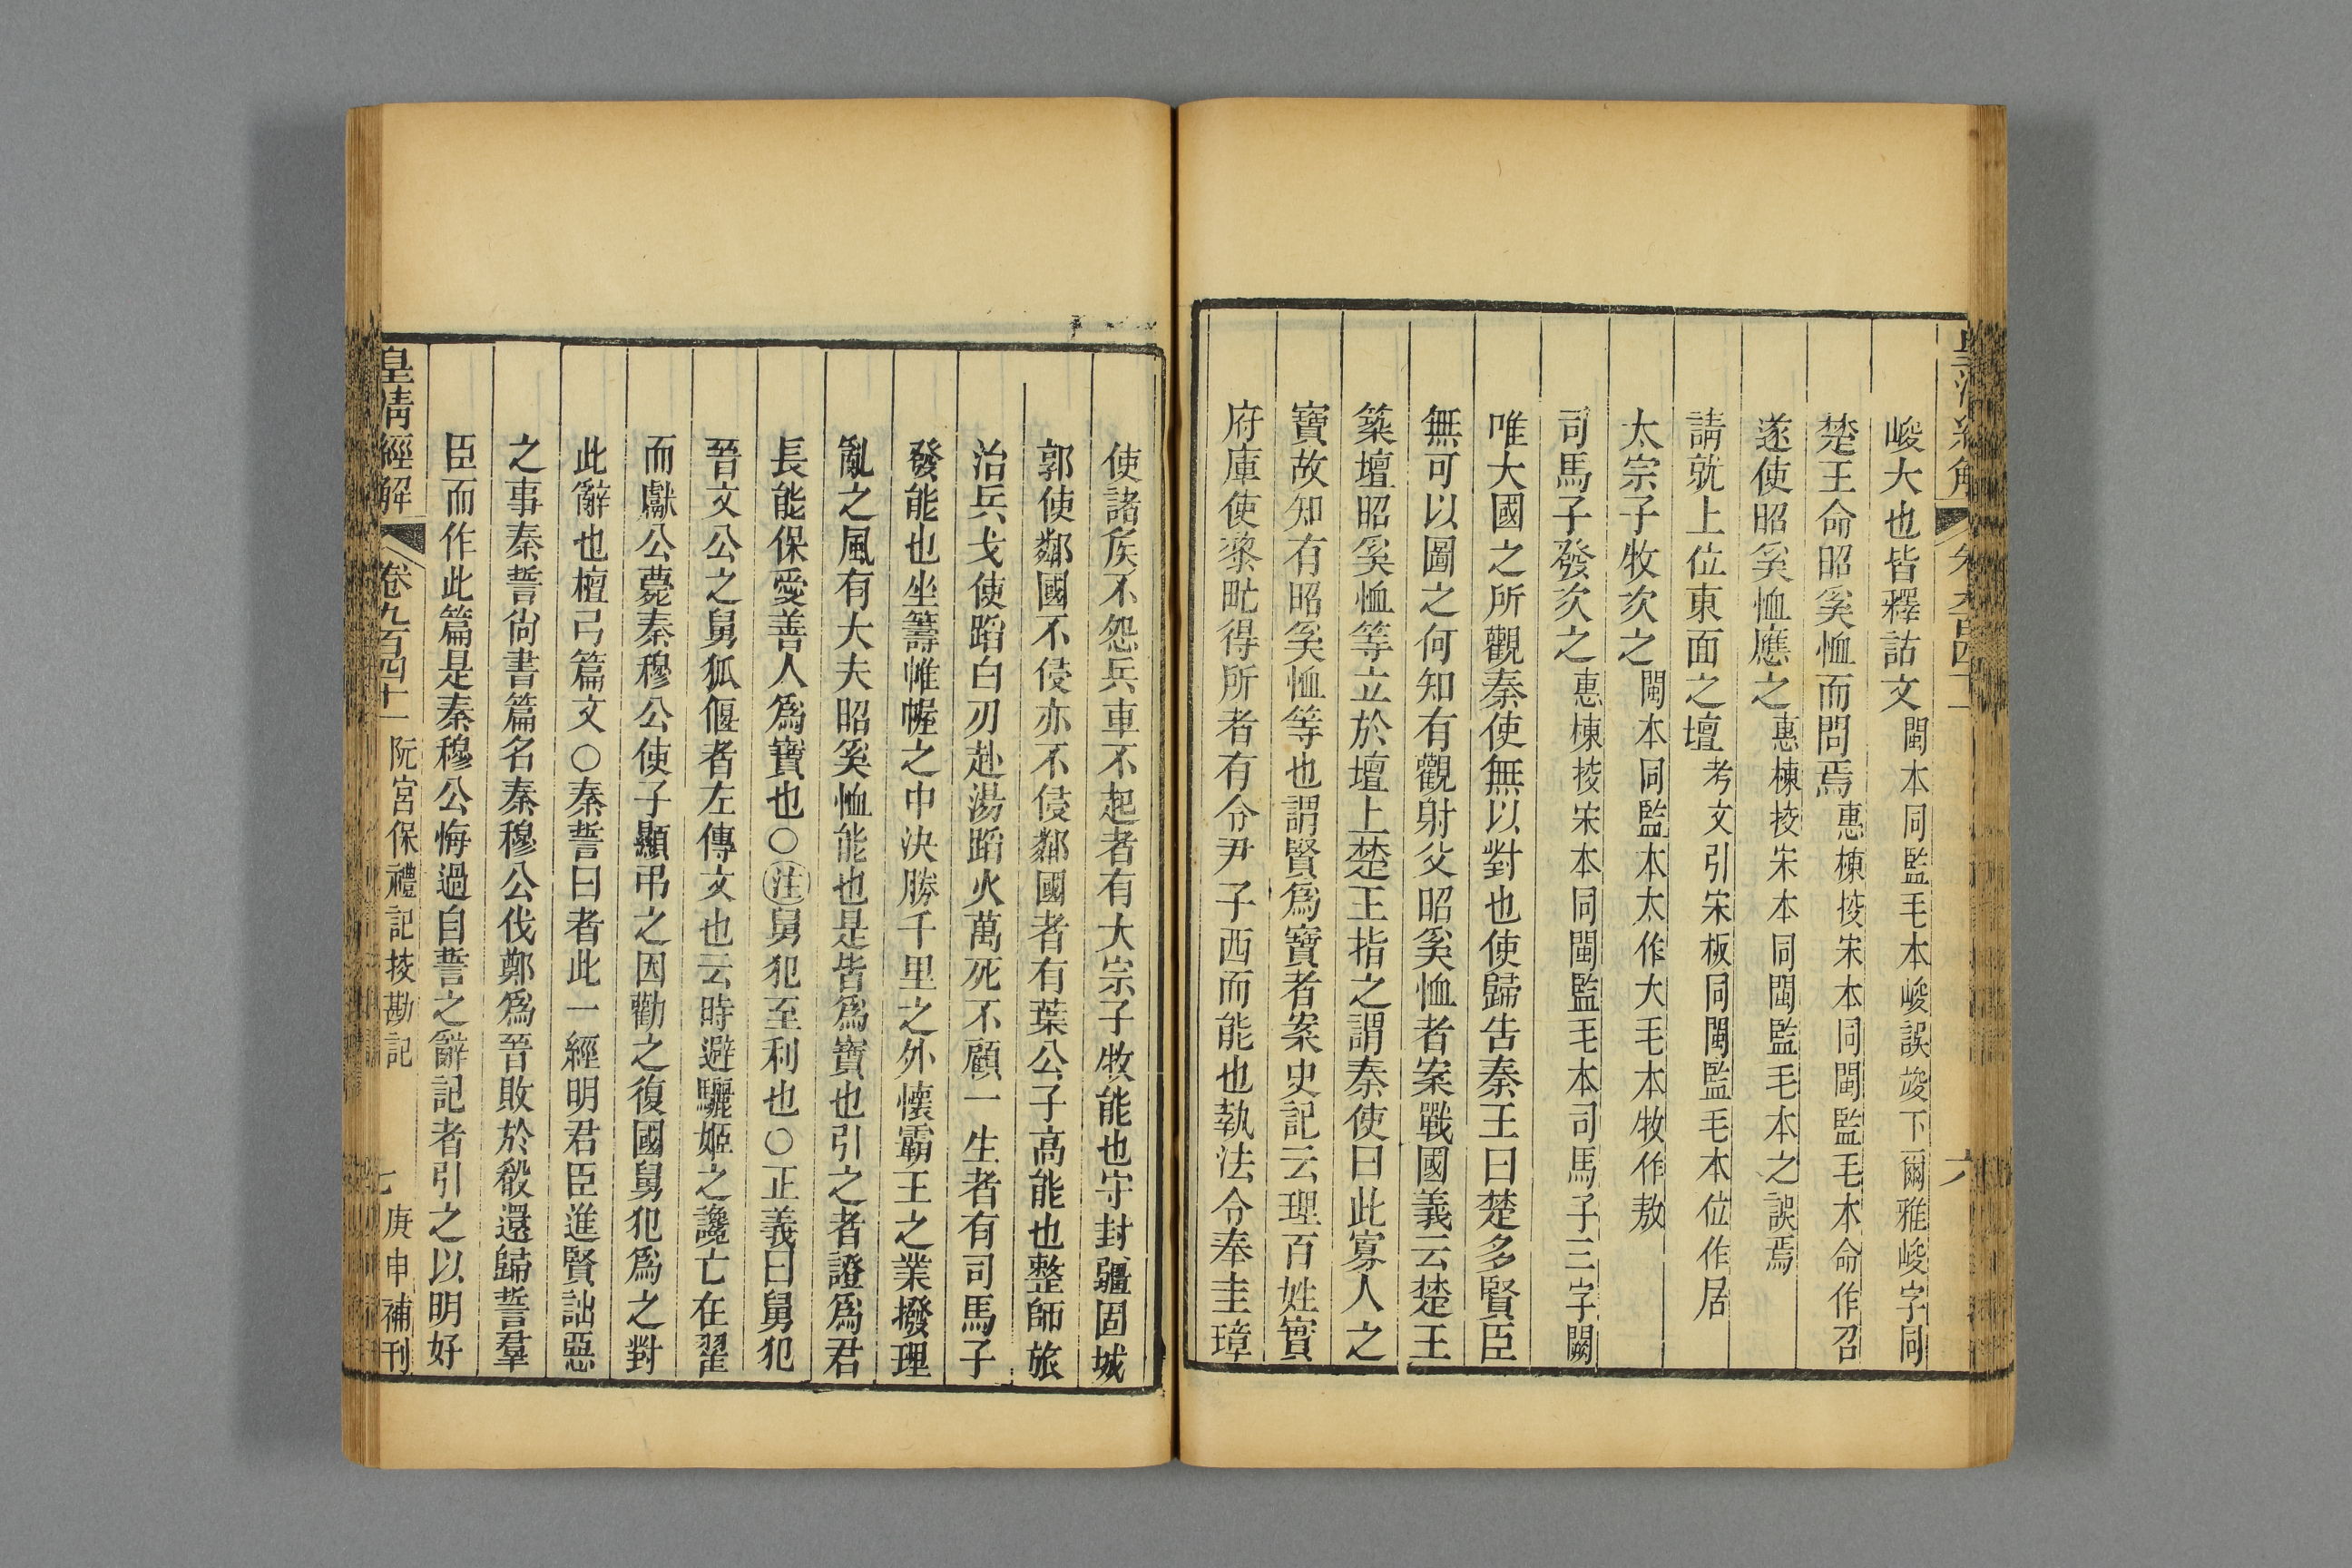 峻大也皆釋詁文閩本同監毛本峻誤竣下爾雅峻字同
楚王命昭奚恤而問焉惠棟挍宋本同閩監毛本命作召
遂使昭奚恤應之惠棟挍宋本同閩監毛本之誤焉
請就上位東面之壇考文引宋板同閩監毛本位作居
太宗子牧次之閩本同監本太作大毛本牧作敖
司馬子發次之惠棟挍宋本同閩監毛本司馬子三字闕
唯大國之所觀秦使無以對也使歸告秦王曰楚多賢臣
無可以圖之何知有觀射父昭奚恤者案戰國義云楚王
築壇昭奚恤等立於壇上楚王指之謂秦使曰此寡人之
寶故知有昭奚恤等也謂賢爲寶者案史記云理百姓實
府庫使黎甿得所者有令尹子西而能也執法令奉圭璋
使諸侯不怨兵車不起者有大宗子牧能也守封疆固城
郭使鄰國不侵亦不侵鄰國者有葉公子高能也整師旅
治兵戈使蹈白刃赴湯蹈火萬死不顧一生者有司馬子
發能也坐籌帷幄之中決勝千里之外懷霸王之業撥理
亂之風有大夫昭奚恤能也是皆爲寶也引之者證爲君
長能保愛善人爲寶也○注舅犯至利也○正義曰舅犯
晉文公之舅狐偃者左傳文也云時避驪姬之讒亡在翟
而獻公薨秦穆公使子顯弔之因勸之復國舅犯爲之對
此辭也檀弓篇文○秦誓曰者此一經明君臣進賢詘惡
之事秦誓尙書篇名秦穆公伐鄭爲晉敗於殽還歸誓羣
臣而作此篇是秦穆公悔過自誓之辭記者引之以明好
皇清經解 卷九百四十一 阮宮保禮記挍勘記 七 庚申補刊